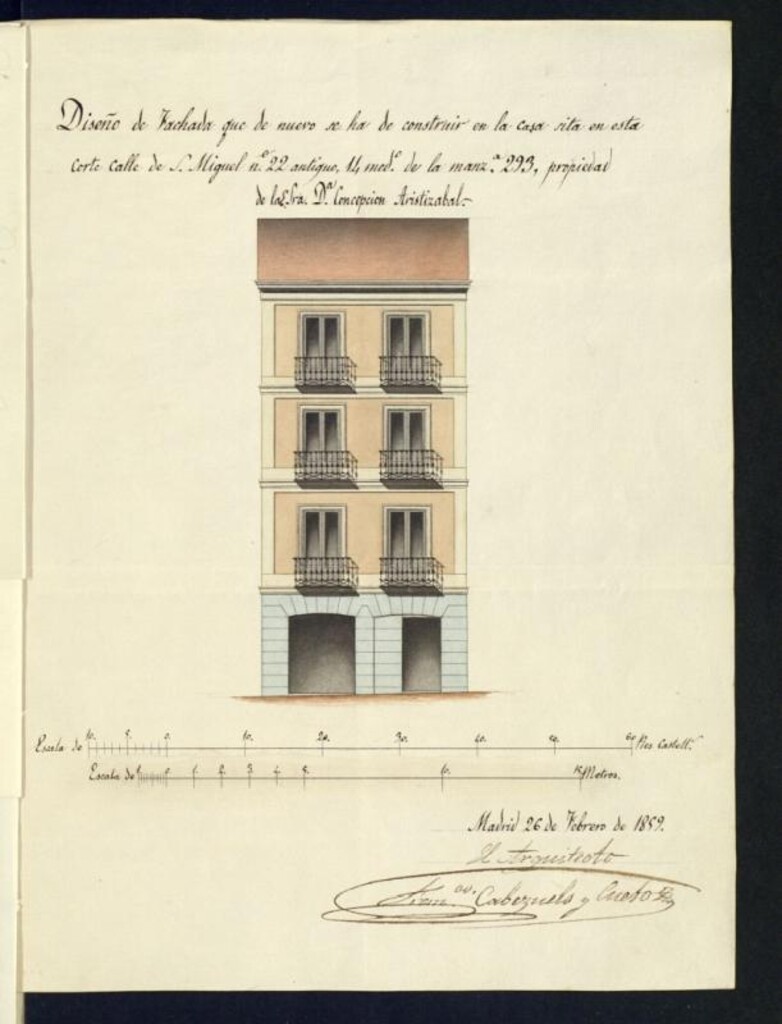 Diseño de Fachada que de nuevo se ha de construir en la casa sita en esta
Corte calle de S. Miguel n.º 22 antiguo, 14 mod.º de la manz.ª 293, propiedad
de la Sra. D.ª Concepcion Aristizabal.
Escala de 10. 5. 0. 10. 20. 30. 40. 50. 60 Pies Castell.s
Escala de 1 0 1. 2. 3. 4. 5. 10. 15 Metros.
Madrid 26 de Febrero de 1859.
El Arquitecto
Cabezuelo y Cueto